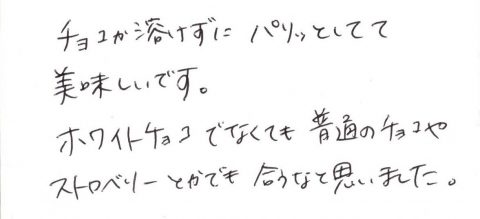 チョコが溶けずに パリッとしてて
美味しいです。
ホワイトチョコ でなくても 普通のチョコや
ストロベリーとかでも 合うなと思いました。